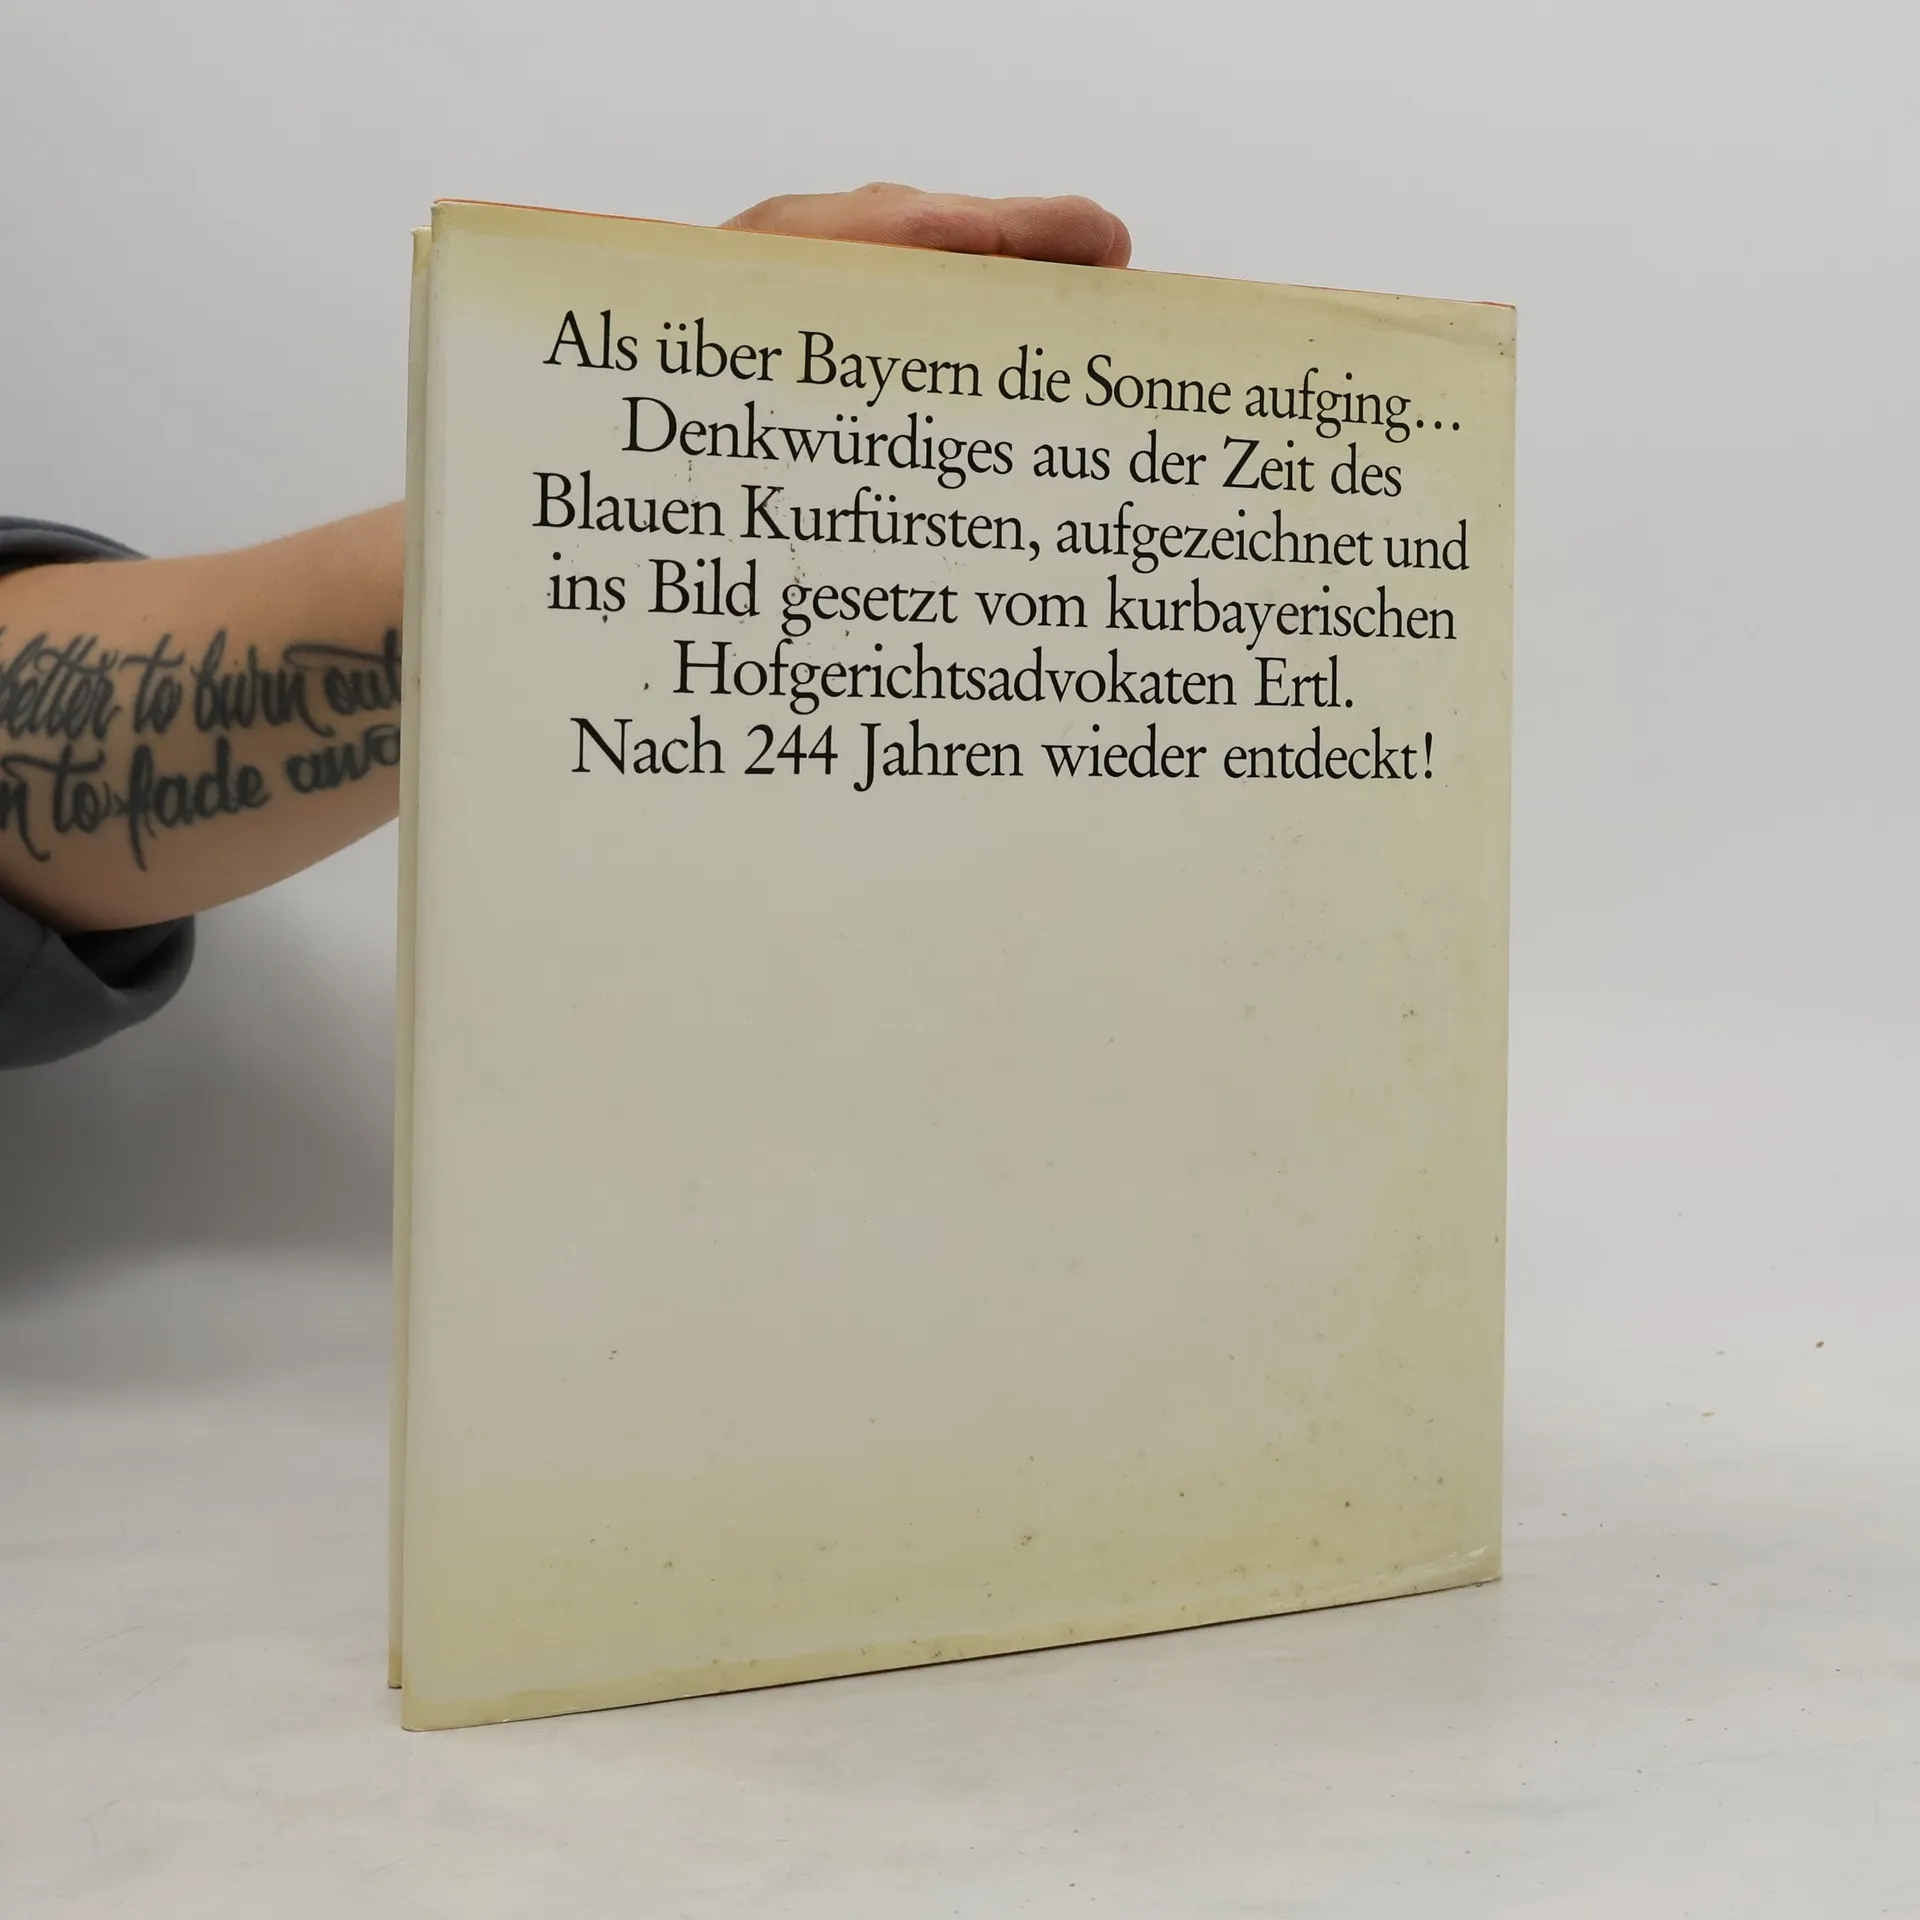 Als über Bayern die Sonne aufging...
Denkwürdiges aus der Zeit des
Blauen Kurfürsten, aufgezeichnet und
ins Bild gesetzt vom kurbayerischen
Hofgerichtsadvokaten Ertl.
Nach 244 Jahren wieder entdeckt!
better to burn out
to fade